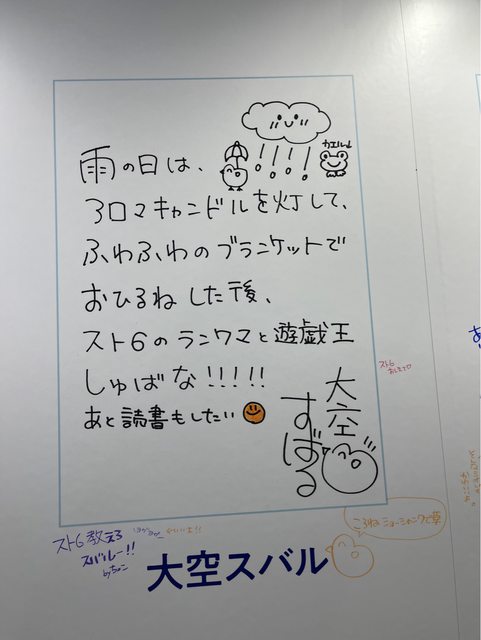 雨の日は、
カエル↓
アロマキャンドルを灯して、
ふわふわのブランケットで
おひるねした後、
スト6のランクマと遊戯王
しゅばな!!!!!
あと読書もしたい
大空
すばる
スト6
おしえて
スト6教えろ
スバルー!!
byちょこ
大空スバル